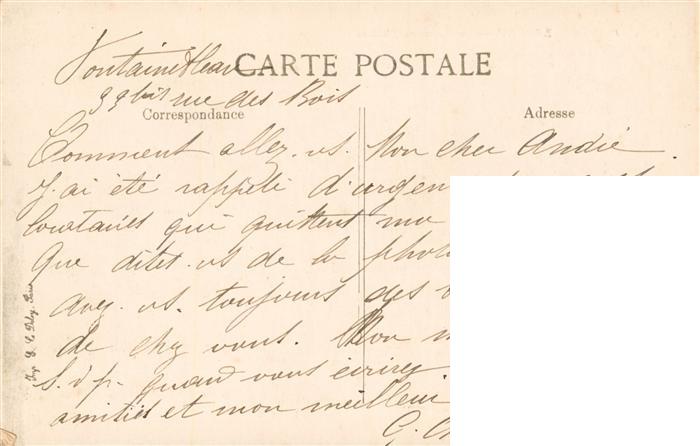 Fontainebleau CARTE POSTALE
99 bis rue des Bois
Correspondance Adresse
Comment allez-vs. Mon cher André
J'ai été rappelé d'urgen
locataires qui quittent ma
Que dites-vs de la phot
avez-vs. toujours des
de chez vous. Mon
S. v p. quand vous écrirez
amitiés et mon meilleur
G.